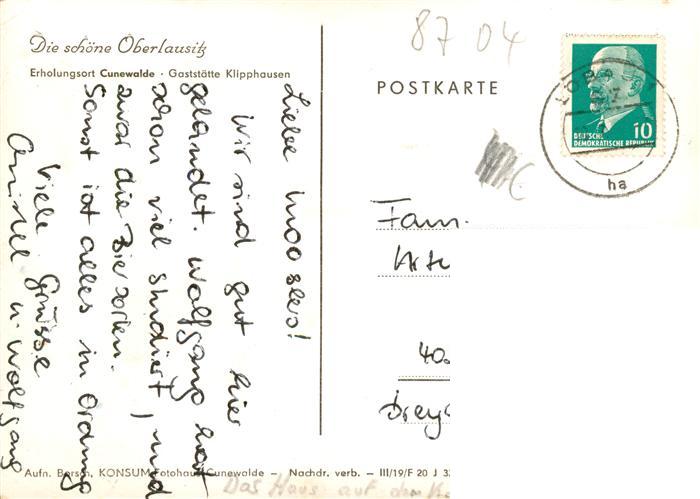 Die schöne Oberlausitz
Erholungsort Cunewalde · Gaststätte Klipphausen
Liebe Mooslers!
Wir sind gut hier
gelandet. Wolfgang hat
schon viel studiert, und
zwar die Biersorten.
Sonst ist alles in Ordnung
Viele Grüsse
Christel u. Wolfgang
8704
POSTKARTE
LÖBA
ha
10
DEUTSCHE
DEMOKRATISCHE REPUBLIK
Fam.
40
Aufn. Borsch, KONSUM Fotohaus Cunewalde – Nachdr. verb. – III/19/F 20 J 3
Das Haus auf dem